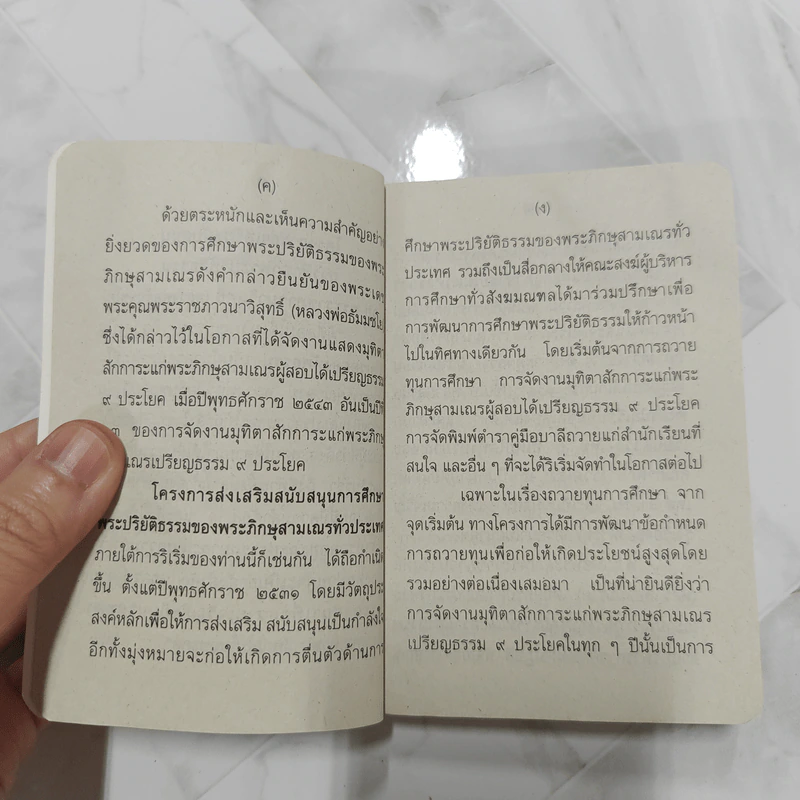 (ค)
ด้วยตระหนักและเห็นความสำคัญอย่าง
ยิ่งยวดของการศึกษาพระปริยัติธรรมของพระ
ภิกษุสามเณรดังคำกล่าวยืนยันของพระเดช
พระคุณพระราชภาวนาวิสุทธิ์ (หลวงพ่อธัมมชโย
ซึ่งได้กล่าวไว้ในโอกาสที่ได้จัดงานแสดงมุทิตา
สักการะแก่พระภิกษุสามเณรผู้สอบได้เปรียญธรรม
๙ ประโยค เมื่อปีพุทธศักราช ๒๕๔๓ อันเป็นปีที่
๓ ของการจัดงานมุทิตาสักการะแก่พระภิกษุ
เณรเปรียญธรรม ๙ ประโยค
โครงการส่งเสริมสนับสนุนการศึกษา
พระปริยัติธรรมของพระภิกษุสามเณรทั่วประเทศ
ภายใต้การริเริ่มของท่านนี้ก็เช่นกัน ได้ถือกำเนิด
ขึ้น ตั้งแต่ปีพุทธศักราช ๒๕๓๑ โดยมีวัตถุประ
สงค์หลักเพื่อให้การส่งเสริม สนับสนุนเป็นกำลังใจ
อีกทั้งมุ่งหมายจะก่อให้เกิดการตื่นตัวด้านการ
(ง)
ศึกษาพระปริยัติธรรมของพระภิกษุสามเณรทั่ว
ประเทศ รวมถึงเป็นสื่อกลางให้คณะสงฆ์ผู้บริหาร
การศึกษาทั่วสังฆมณฑลได้มาร่วมปรึกษาเพื่อ
การพัฒนาการศึกษาพระปริยัติธรรมให้ก้าวหน้า
ไปในทิศทางเดียวกัน โดยเริ่มต้นจากการถวาย
ทุนการศึกษา การจัดงานมุทิตาสักการะแก่พระ
ภิกษุสามเณรผู้สอบได้เปรียญธรรม ๙ ประโยค
การจัดพิมพ์ตำราคู่มือบาลีถวายแก่สำนักเรียนที่
สนใจ และอื่น ๆ ที่จะได้ริเริ่มจัดทำในโอกาสต่อไป
เฉพาะในเรื่องถวายทุนการศึกษา จาก
จุดเริ่มต้น ทางโครงการได้มีการพัฒนาข้อกำหนด
การถวายทุนเพื่อก่อให้เกิดประโยชน์สูงสุดโดย
รวมอย่างต่อเนื่องเสมอมา เป็นที่น่ายินดียิ่งว่า
การจัดงานมุทิตาสักการะแก่พระภิกษุสามเณร
เปรียญธรรม ๙ ประโยคในทุก ๆ ปีนั้นเป็นการ